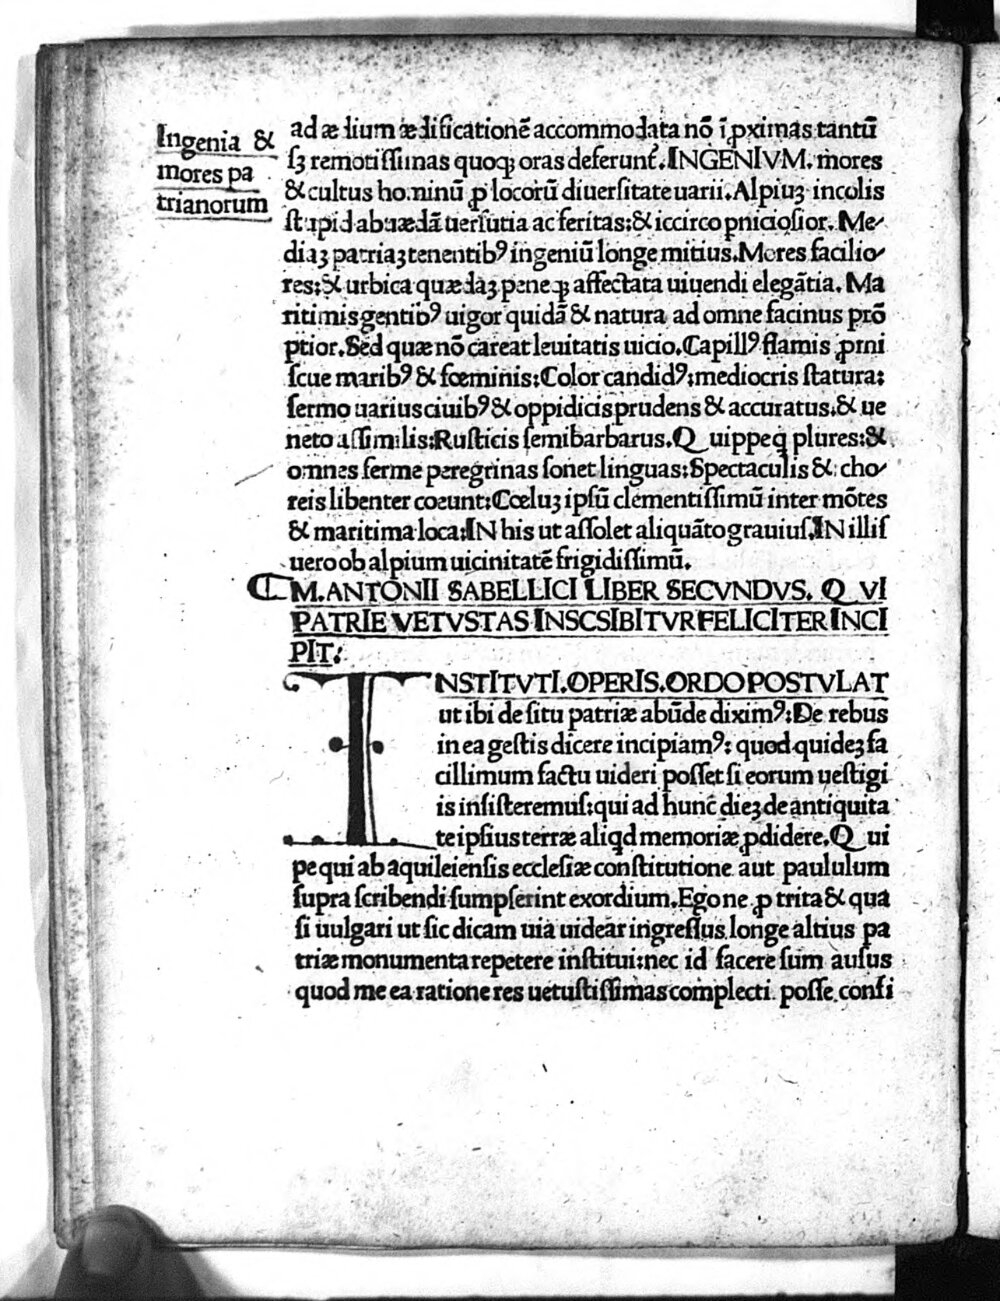 Ingenia &
mores pa
trianorum
ad ædium ædificationē accommodata nō ī ꝓximas tantū
sꝫ remotissimas quoqꝫ oras deferunt᷑. INGENIVM. mores
& cultus hominū ꝓ locorū diuersitate uarii. Alpiuꝫ incolis
stupida quædā uersutia ac feritas: & iccirco ꝑniciosior. Me-
diaꝫ patriaꝫ tenentibꝰ ingeniū longe mitius. Mores facilio-
res: & urbica quædaꝫ peneqꝫ affectata uiuendi elegātia. Ma
ritimis gentibꝰ uigor quidā & natura ad omne facinus prō
ptior. Sed quæ nō careat leuitatis uicio. Capillꝰ flamis ꝓmi
scue maribꝰ & fœminis: Color candidꝰ: mediocris statura:
sermo uarius ciuibꝰ & oppidicis prudens & accuratus. & ue
neto assimilis: Rusticis semibarbarus. Q uippeqꝫ plures: &
omnes ferme peregrinas sonet linguas: Spectaculis & cho-
reis libenter coeunt: Cœluꝫ ipsū clementissimū inter mōtes
& maritima loca: IN his ut assolet aliquāto grauius. IN illis
uero ob alpium uicinitatē frigidissimū.
M. ANTONII SABELLICI LIBER SECVNDVS. Q VI
PATRIE VETVSTAS INSCSIBITVR FELICITER INCI
PIT:
INSTITVTI. OPERIS. ORDO POSTVLAT
ut ibi de situ patriæ abūde diximꝰ: De rebus
in ea gestis dicere incipiamꝰ: quod quideꝫ fa
cillimum factu uideri posset si eorum uestigi
is insisteremus: qui ad hunc dieꝫ de antiquita
te ipsius terræ aliqd memoriæ ꝓdidere. Q ui
pe qui ab aquileiensis ecclesiæ constitutione aut paululum
supra scribendi sumpserint exordium. Ego ne ꝑ trita & qua
si uulgari ut sic dicam uia uidear ingressus longe altius pa
triæ monumenta repetere institui: nec id facere sum ausus
quod me ea ratione res uetustissimas complecti posse confi